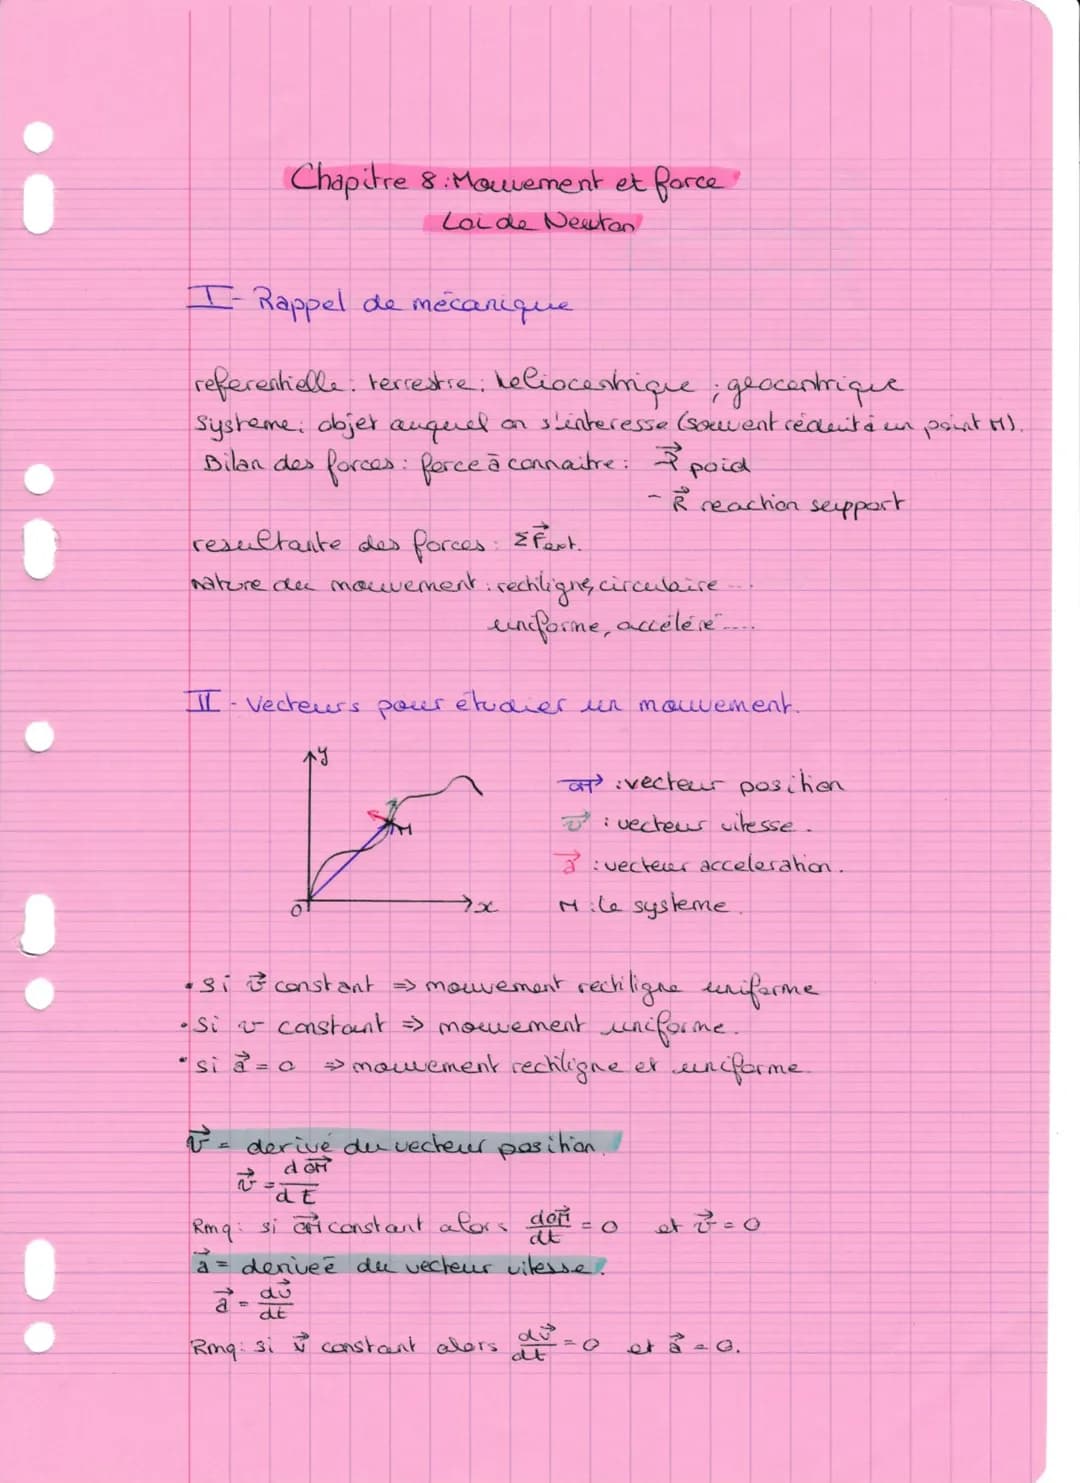 Chapitre 8 : Mouvement et force
Loi de Newton
I - Rappel de mécanique
referentielle : terrestre ; heliocentrique ; geocentrique
Systeme : objet auquel on s'interesse (souvent réduit à un point M).
Bilan des forces : force à connaitre : P⃗ poid
- R⃗ reaction support
resultante des forces : ΣF⃗ext.
nature du mouvement : rectiligne, circulaire ...
uniforme, accéléré ....
II - Vecteurs pour étudier un mouvement.
y
OM⃗ : vecteur position
M
v⃗ : vecteur vitesse.
a⃗ : vecteur acceleration.
O x
M : le systeme.
• si v⃗ constant ⇒ mouvement rectiligne uniforme
• si v constant ⇒ mouvement uniforme.
• si a⃗ = 0 ⇒ mouvement rectiligne et uniforme.
v⃗ = derivé du vecteur position.
v⃗ = dOM⃗/dt
Rmq : si OM⃗ constant alors dOM⃗/dt = 0 et v⃗ = 0
a⃗ = deriveé du vecteur vitesse.
a⃗ = dv⃗/dt
Rmq : si v⃗ constant alors dv⃗/dt = 0 et a⃗ = 0.